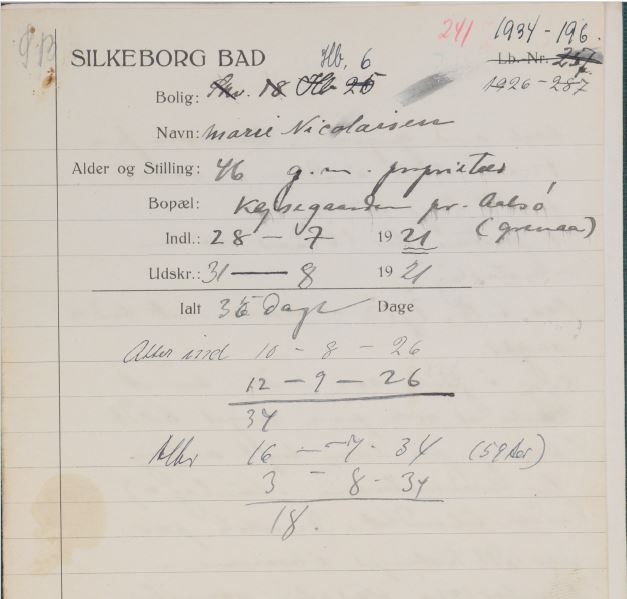 241 1934 - 196
SILKEBORG BAD Hb. 6 Lb. Nr. 257
Bolig: 18 Hb 25 1926 - 287
Navn: Marie Nicolaisen
Alder og Stilling: 46 g. m. proprietær
Bopæl: Kejsegaarden pr. Aalsø
Indl.: 28 - 7 1921 (Grenaa)
Udskr.: 31 — 8 1921
Ialt 35 Dage Dage
Atter ind 10 - 8 - 26
12 - 9 - 26
34
Atter 16 - 7 - 34 (59 Aar)
3 - 8 - 34
18.